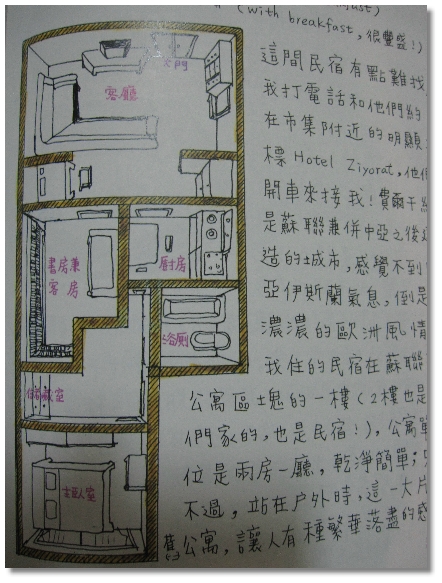 (with breakfast, 很豐盛!)
這間民宿有點難找
我打電話和他們約
在市集附近的明顯
標 Hotel Ziyorat, 他們
開車來接我! 費爾干納
是蘇聯兼併中亞之後
造的城市, 感覺不到
亞伊斯蘭氣息, 倒是
濃濃的歐洲風情
我住的民宿在蘇聯
公寓區士鬼的一樓(2樓也是
們家的, 也是民宿!), 公寓單
位是兩房一廳, 乾淨簡單;
不過, 站在戶外時, 這一大片
舊公寓, 讓人有種繁華落盡的感
大門
客廳
書房兼
客房
廚房
浴廁
儲藏室
主臥室